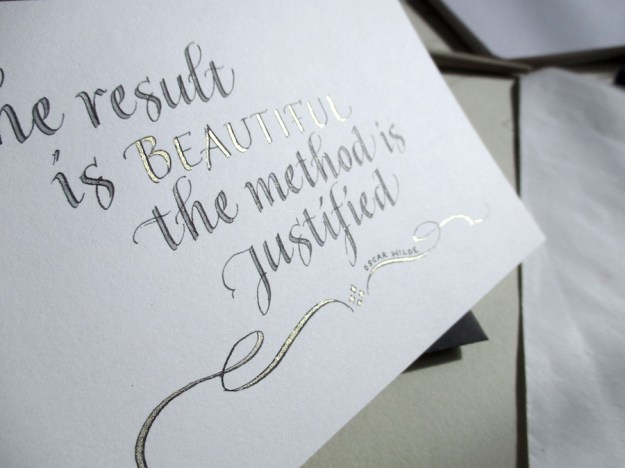 he result
is BEAUTIFUL
the method is
justified
OSCAR WILDE